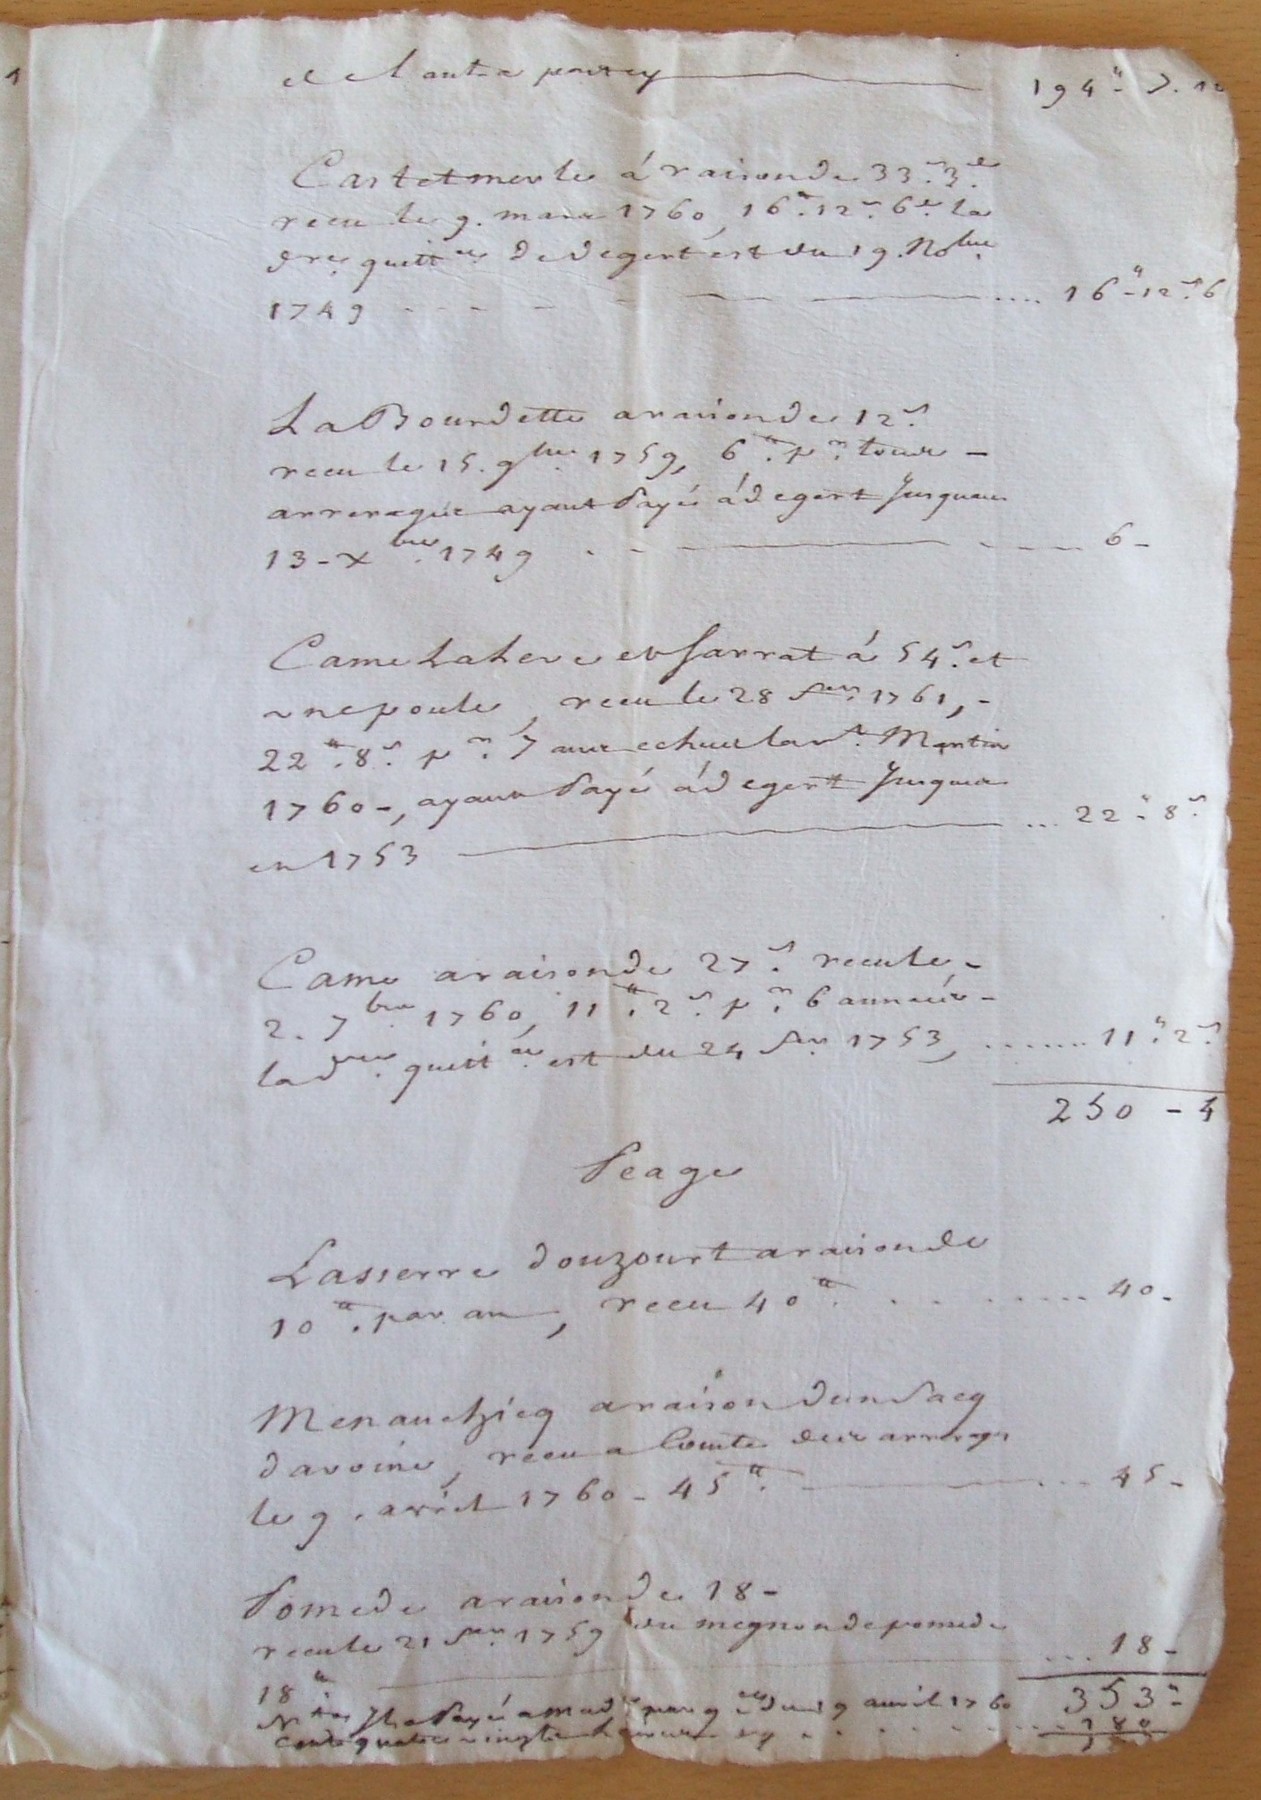 de l'autre part cy 194ᵗᵗ. 7. 10
Castetmerle á raison de 33ˢ. 3ᵈ.
recu le 9. mars 1760, 16ᵗᵗ. 12ˢ. 6ᵈ. la
dʳᵉ. quittᶜᵉ de degert est du 19. Noᵇʳᵉ.
1749 16ᵗᵗ - 12ˢ. 6
La Bourdette a raison de 12ˢ.
recu le 15. 9ᵇʳᵉ 1759, 6ᵗᵗ. pʳ. tous -
arrerages ayant payé á degert jusquau
13 - xᵇʳᵉ. 1749 6 -
Came et Sarrat á 54ˢ. et
une poule, recu le 28 1761, -
22ᵗᵗ. 8ˢ. pʳ. 7 ans echus lars. Martin
1760 -, ayant payé á degert jusques
en 1753 22ᵗᵗ. 8ˢ.
Came a raison de 27ˢ. recu le -
2. 7ᵇʳᵉ 1760, 11ᵗᵗ. 2ˢ. pʳ. 6 années -
la dʳᵉ. quittᶜᵉ. est du 24 1753, 11ᵗᵗ. 2ˢ.
250 - 4
Peage
Lasserre douzourt a raison de
10ᵗᵗ. par an, recu 40ᵗᵗ. 40 -
Menauchicq a raison dun sacq
davoine, recu a Comte des arrerages
le 9. avril 1760 - 45ᵗᵗ. 45 -
Pomede a raison de 18 -
recu le 21 1759 du megnon de pomede
18ᵗᵗ 18 -
353ᵗᵗ -
Jl a payé a Madᵉ par qᶜᵉ du 19 avril 1760
cent quatre vingts cy 180